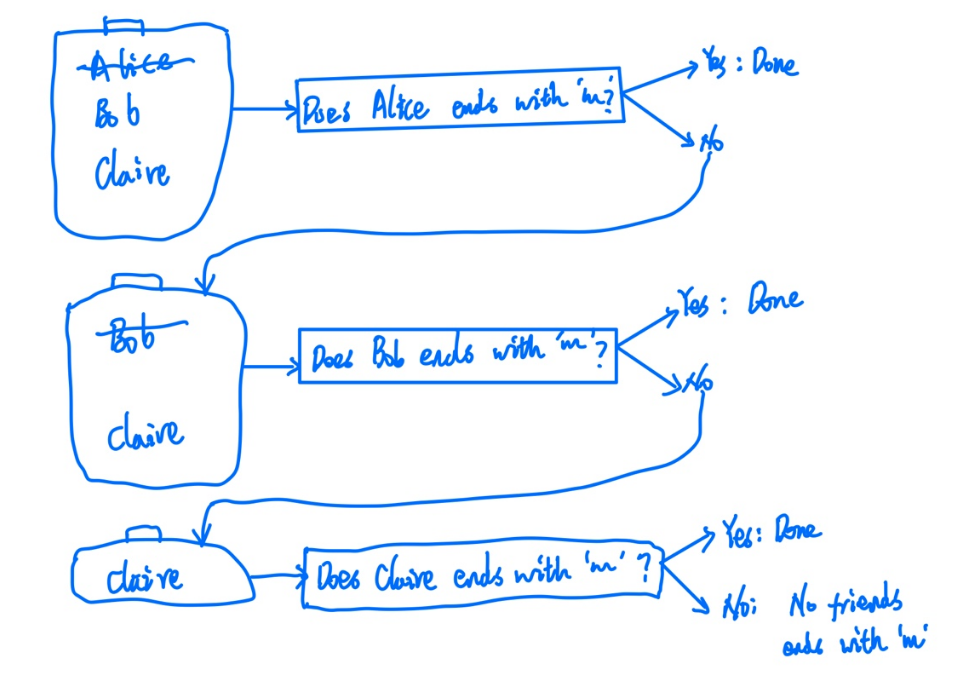 Alice
Bob
Claire
Does Alice ends with 'm'?
Yes : Done
No
Bob
Claire
Does Bob ends with 'm'?
Yes : Done
No
Claire
Does Claire ends with 'm' ?
Yes: Done
No: No friends
ends with 'm'